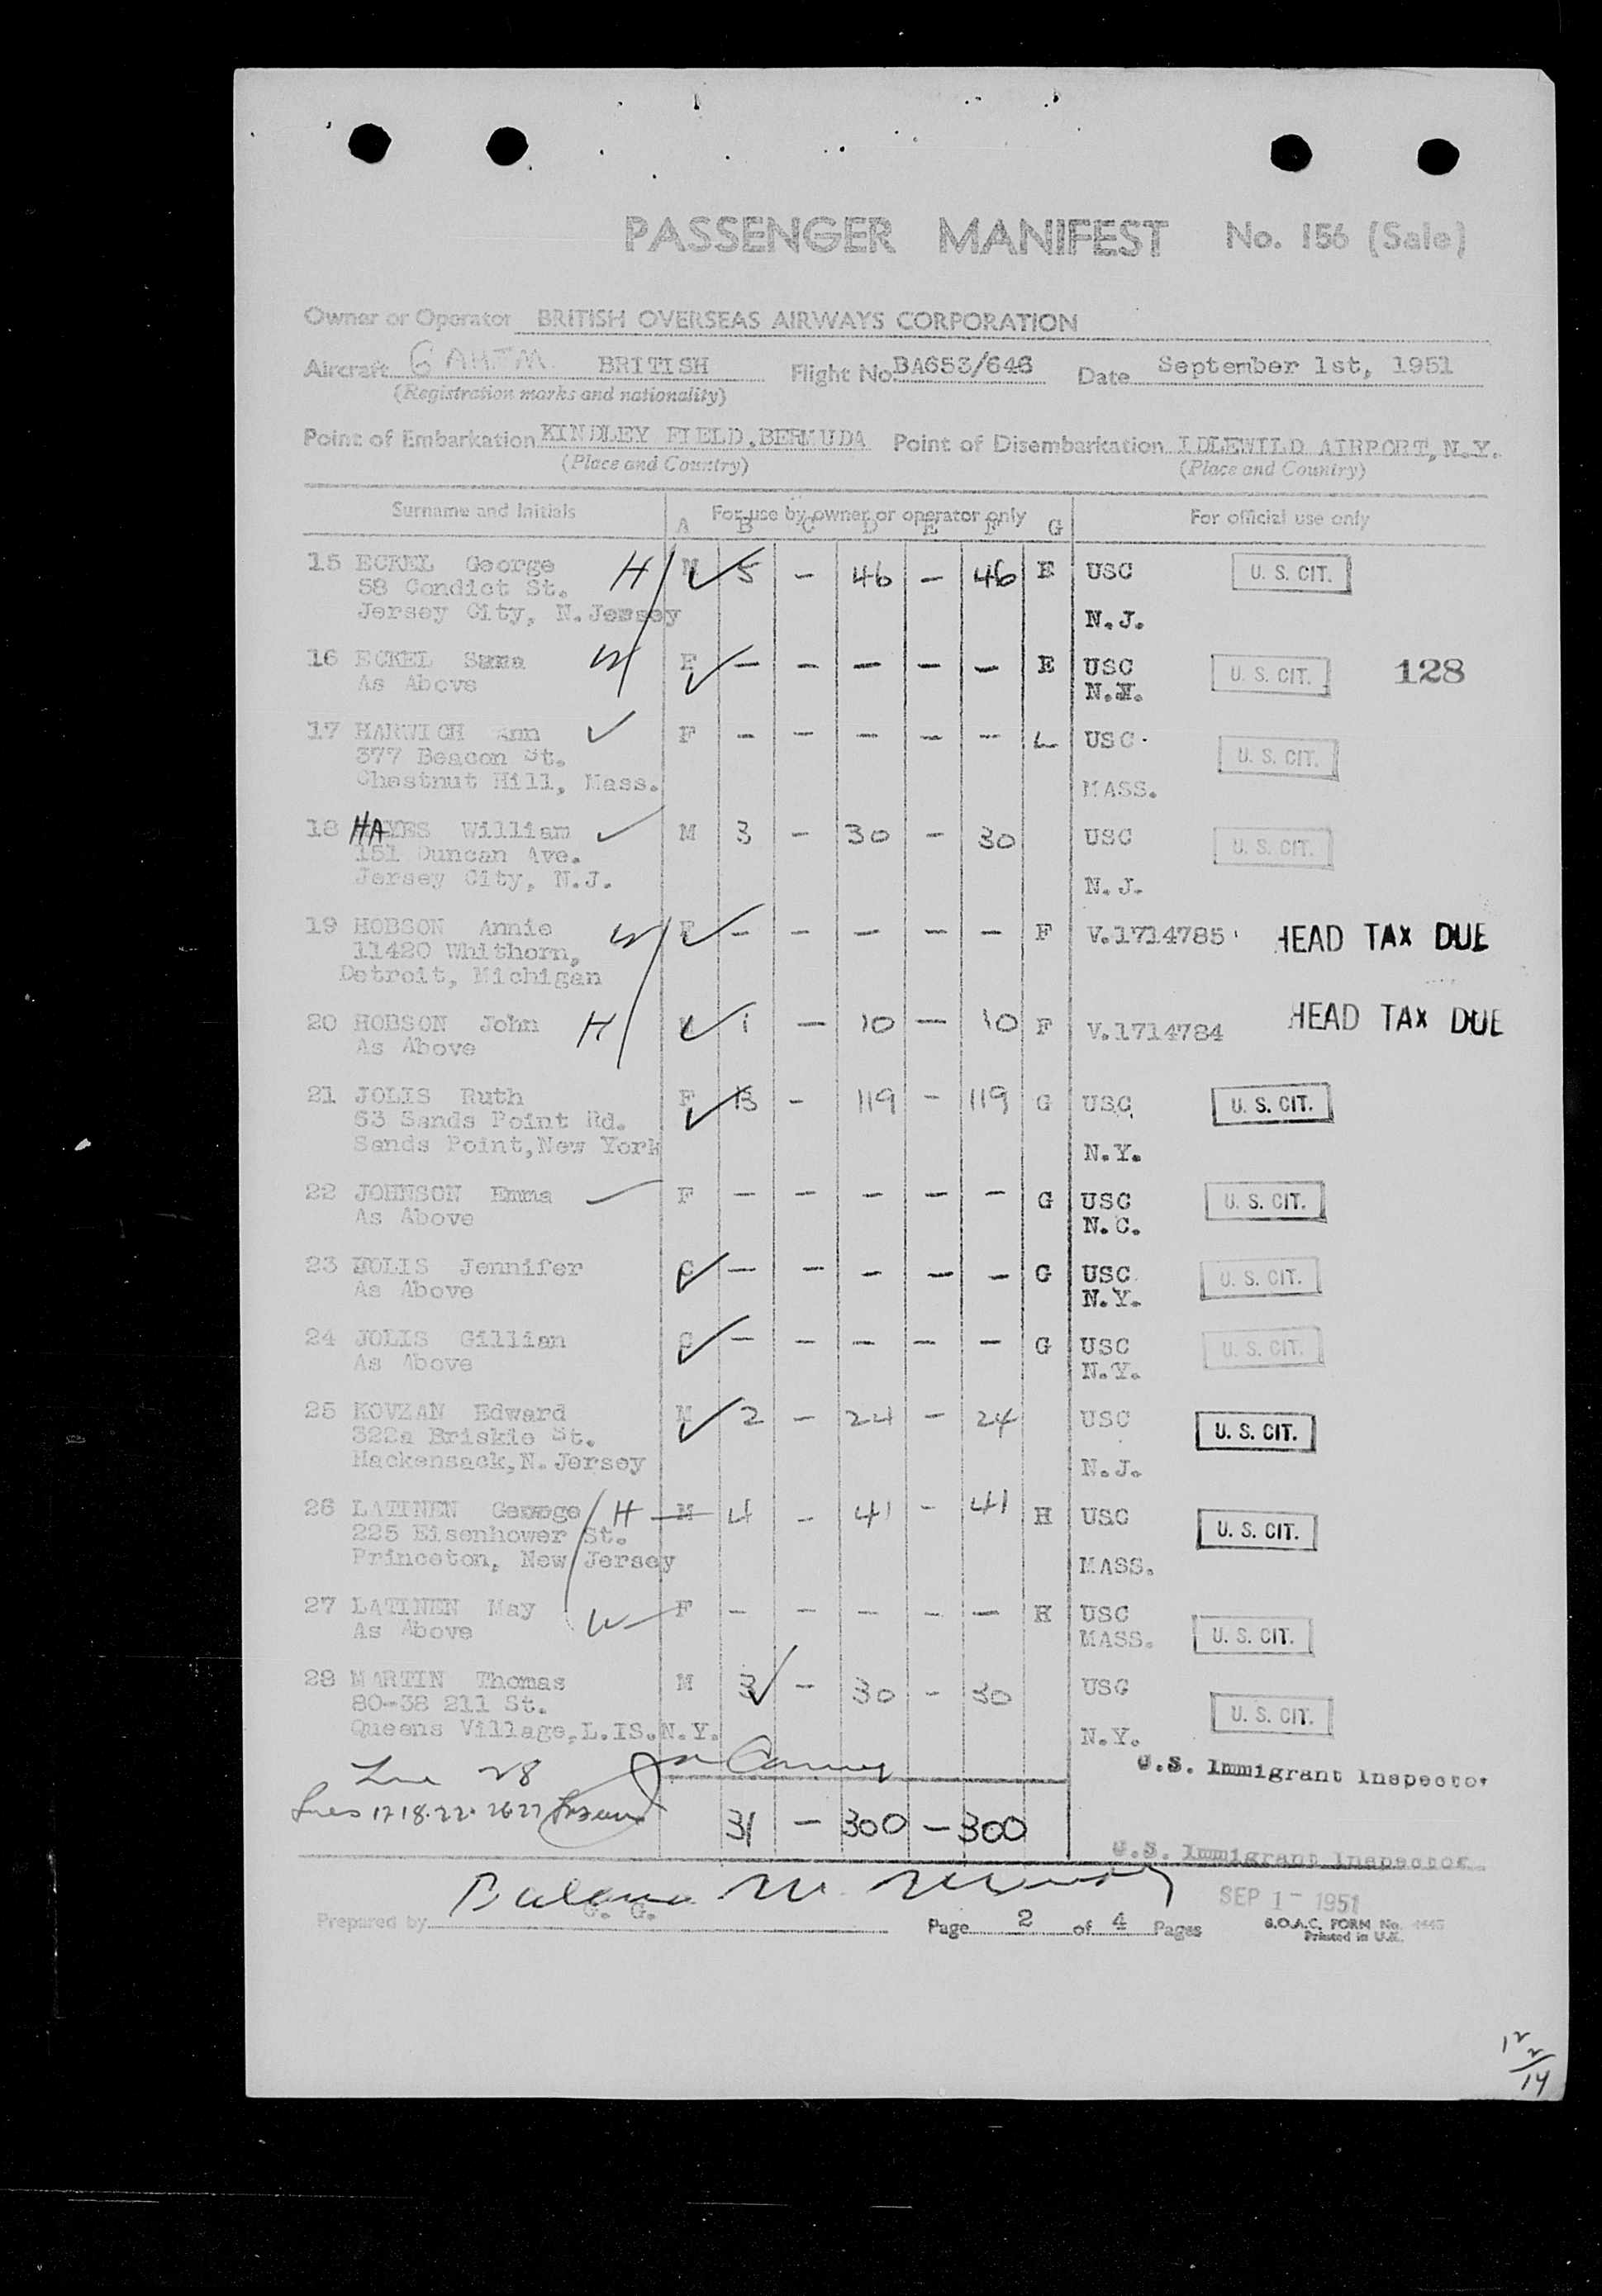 PASSENGER MANIFEST No. 156 (Sale)
Owner or Operator BRITISH OVERSEAS AIRWAYS CORPORATION
Aircraft G AHJM BRITISH Flight No. BA653/646 Date September 1st, 1951
(Registration marks and nationality)
Point of Embarkation KINDLEY FIELD, BERMUDA Point of Disembarkation IDLEWILD AIRPORT, N.Y.
(Place and Country) (Place and Country)
Surname and Initials For use by owner or operator only For official use only
A B C D E F G
15 ECKEL George H M 5 - 46 - 46 E USC U. S. CIT.
58 Condict St.
Jersey City, N. Jersey N.J.
16 ECKEL Sama W F - - - - - E USC U. S. CIT. 128
As Above N.Y.
17 HARWICH Ann F - - - - - L USC. U. S. CIT.
377 Beacon St.
Chestnut Hill, Mass. MASS.
18 HAYES William M 3 - 30 - 30 USC U. S. CIT.
151 Duncan Ave.
Jersey City, N.J. N.J.
19 HOBSON Annie W F - - - - - F V.1714785 HEAD TAX DUE
11420 Whithorn,
Detroit, Michigan
20 HOBSON John H 1 - 10 - 10 F V.1714784 HEAD TAX DUE
As Above
21 JOLIS Ruth F 13 - 119 - 119 G USC U. S. CIT.
53 Sands Point Rd.
Sands Point, New York N.Y.
22 JOHNSON Emma F - - - - - G USC U. S. CIT.
As Above N.C.
23 JOLIS Jennifer C - - - - - G USC U. S. CIT.
As Above N.Y.
24 JOLIS Gillian C - - - - - G USC U. S. CIT.
As Above N.Y.
25 KOVZAN Edward M 2 - 24 - 24 USC U. S. CIT.
322a Briskie St.
Hackensack, N. Jersey N.J.
26 LATINEN George H M 4 - 41 - 41 H USC U. S. CIT.
225 Eisenhower St.
Princeton, New Jersey MASS.
27 LATINEN May W F - - - - - H USC U. S. CIT.
As Above MASS.
28 MARTIN Thomas M 3 - 30 - 30 USC U. S. CIT.
80-38 211 St.
Queens Village, L.IS.N.Y. N.Y.
Line 28 U.S. Immigrant Inspector
Lines 17 18. 22. 26 27 31 - 300 - 300
U.S. Immigrant Inspector
Prepared by G. G. Page 2 of 4 Pages SEP 1 - 1951
B.O.A.C. FORM No. 1445
Printed in U.K.
12
2
14